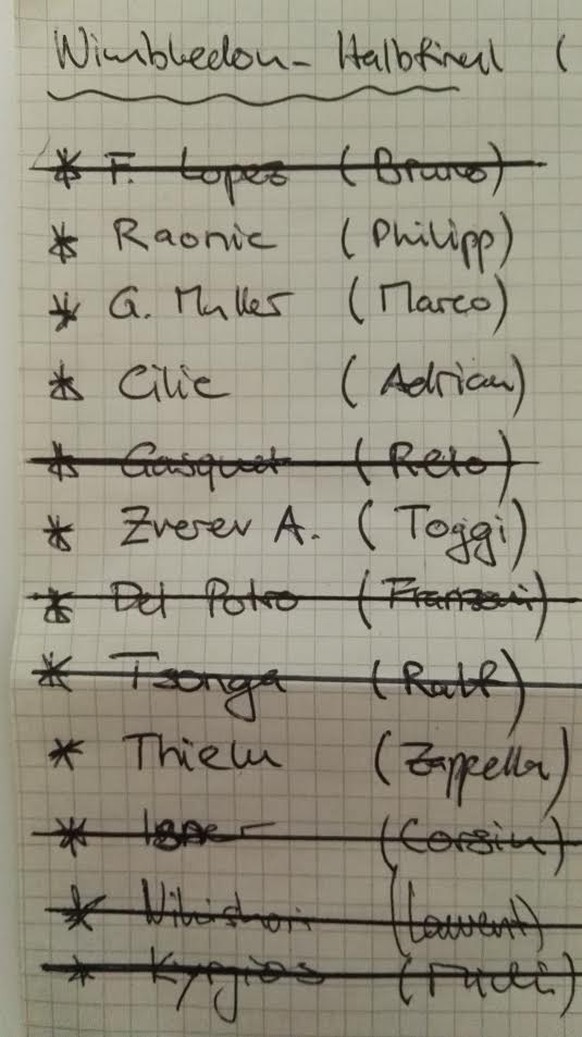 Wimbledon-Halbfinal (
* F. Lopez (Bruno)
* Raonic (Philipp)
* G. Muller (Marco)
* Cilic (Adrian)
* Gasquet (Reto)
* Zverev A. (Toggi)
* Del Potro (Franzoni)
* Tsonga (Ralf)
* Thiem (Zappella)
* Isner (Corsin)
* Nishikori (Laurent)
* Kyrgios